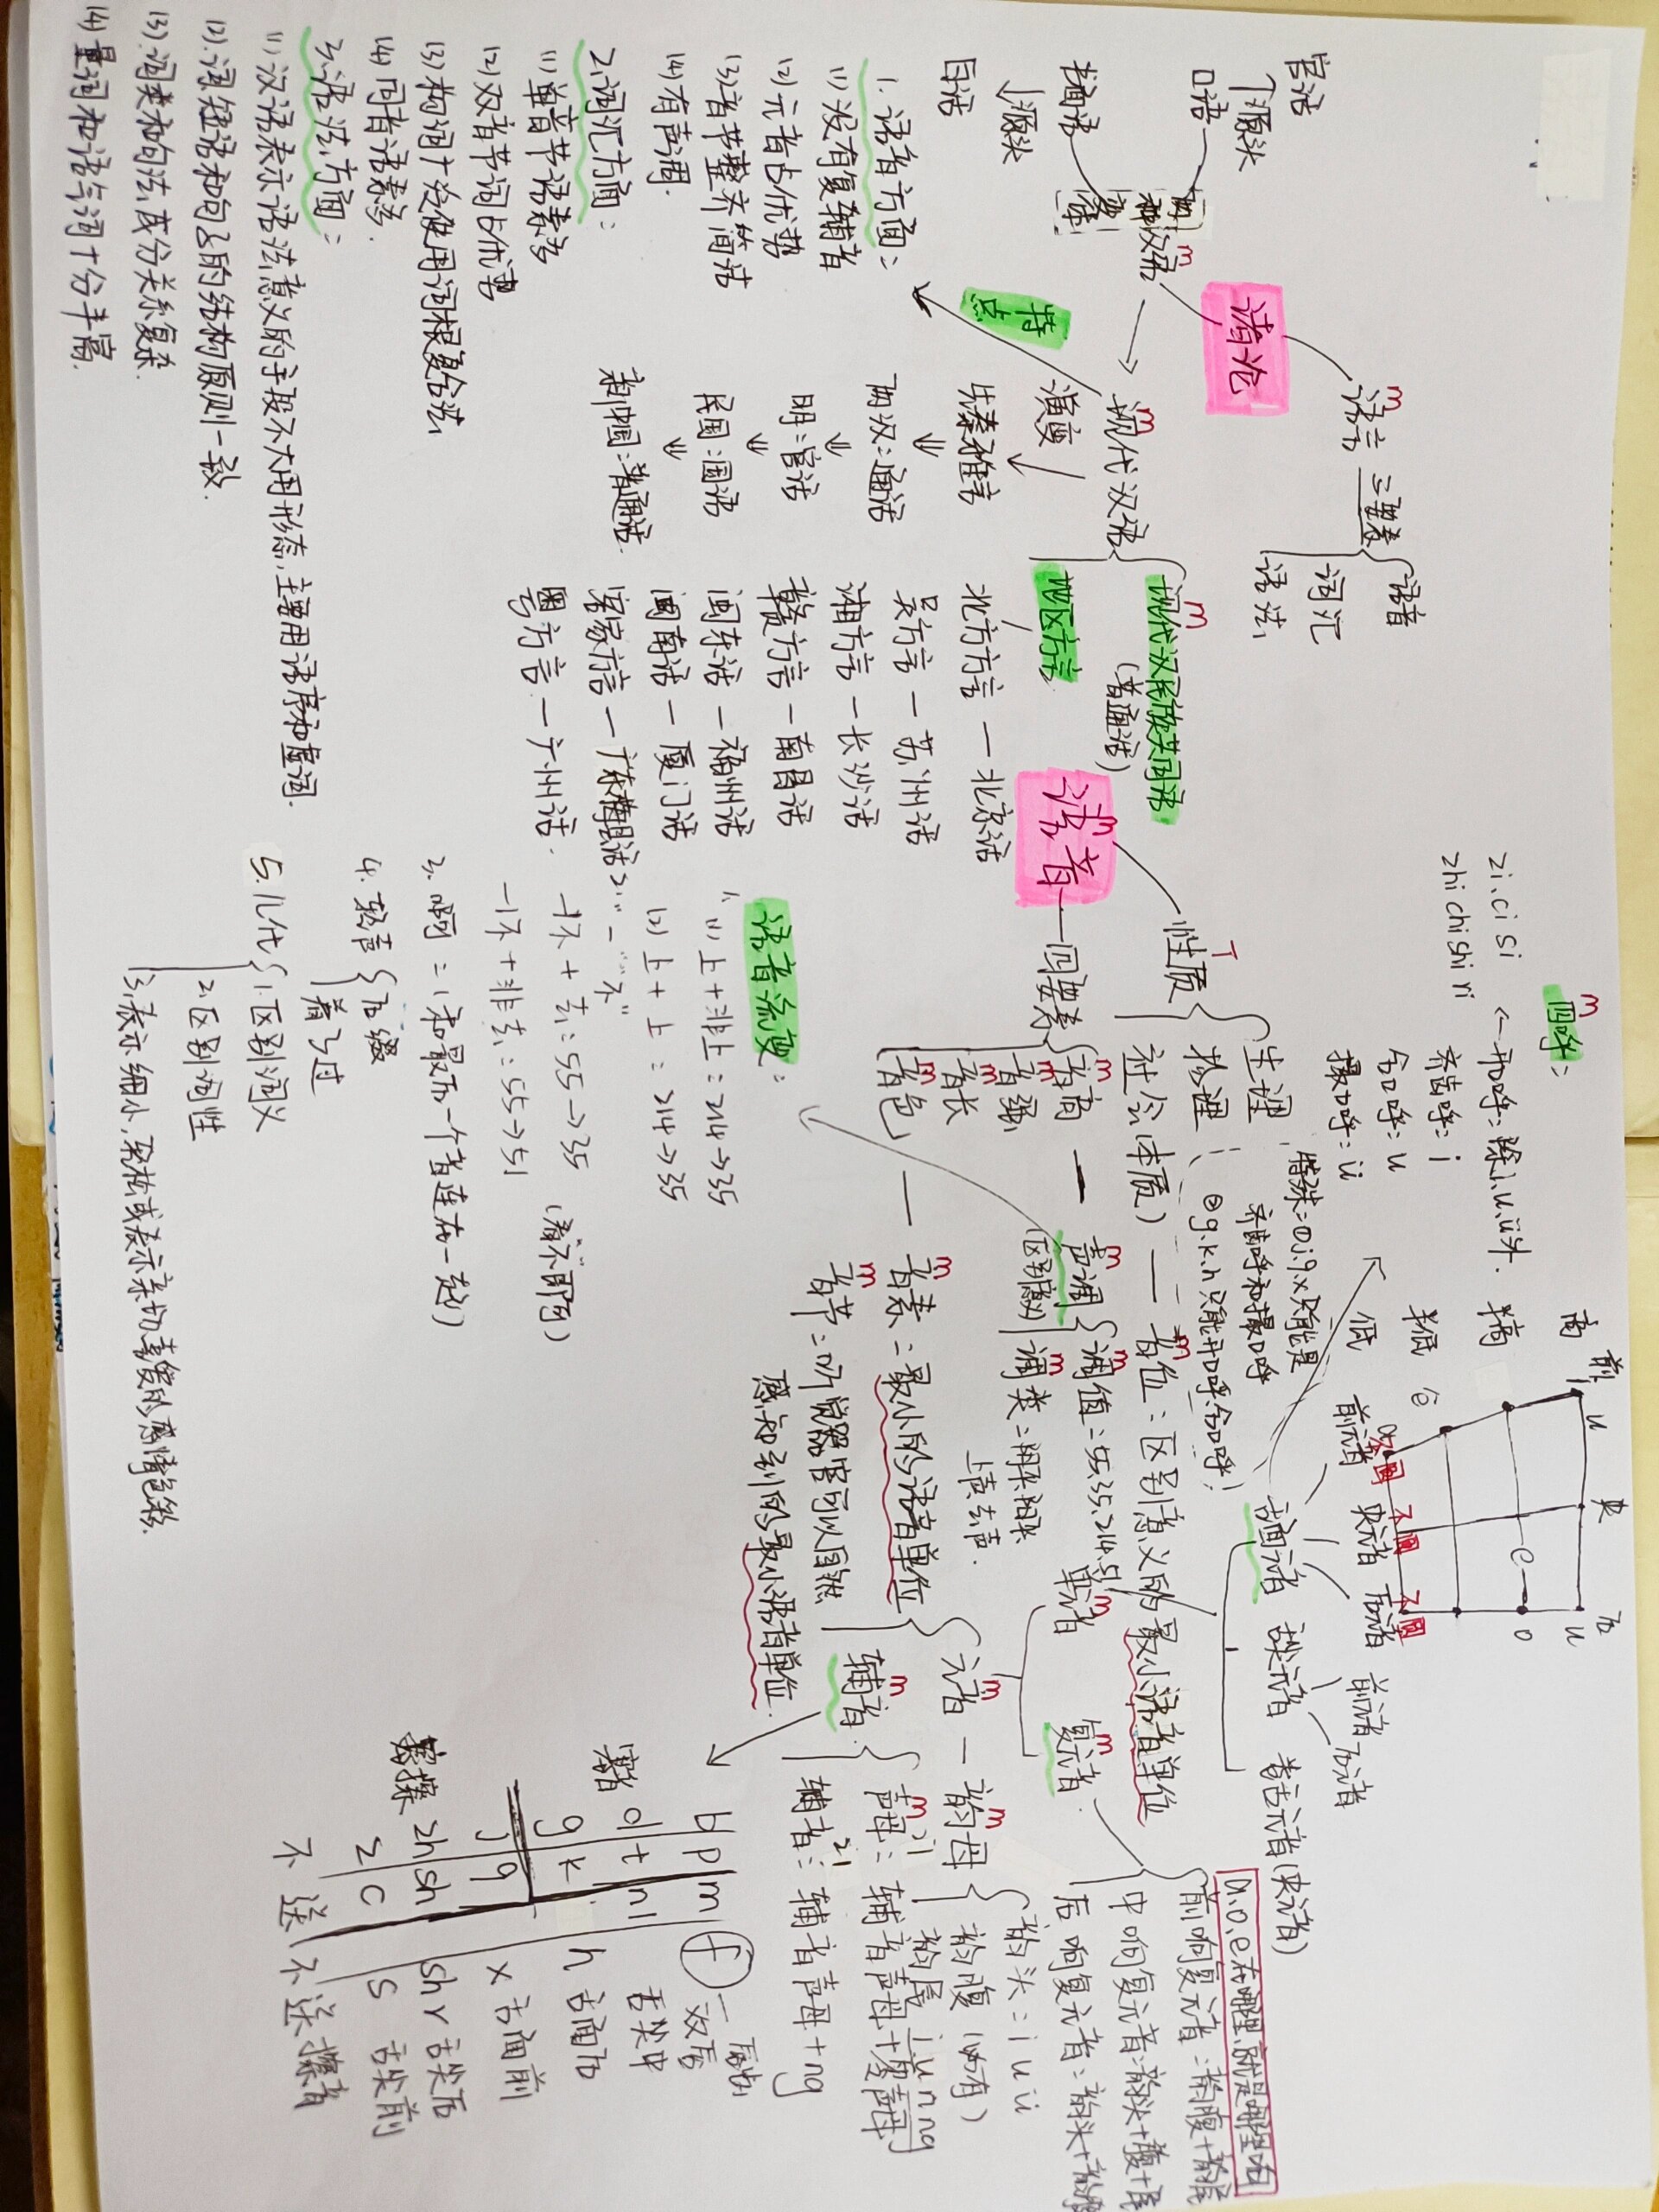 绪论
语言 三要素
语音
词汇
语法
汉语
口语
源头
官话
书面语
源头
白话
现代汉语
现代汉民族共同语
(普通话)
地区方言
北方方言—北京话
吴方言—苏州话
湘方言—长沙话
赣方言—南昌话
闽东话—福州话
闽南话—厦门话
客家方言—广东梅县话
粤方言—广州话.
演变
先秦:雅言
两汉:通话
明:官话
民国:国语
新中国:普通话.
特点
1.语音方面:
(1)没有复辅音
(2)元音占优势
(3)音节整齐简洁
(4)有声调.
2.词汇方面:
(1)单音节语素多
(2)双音节词占优势
(3)构词广泛使用词根复合法
(4)同音语素多.
3.语法方面:
(1)汉语表示语法意义的手段不大用形态,主要用语序和虚词.
(2).词、短语和句子的结构原则一致.
(3)词类和句法成分关系复杂.
(4)量词和语气词十分丰富.
语音
性质
生理
物理
社会(本质)——音位:区别意义的最小语音单位
四要素
音高—声调
音强
音长
音色——音素:最小的语音单位
(区别意义)
调值:55.35.214.51
调类:阴平阳平
上声去声.
音节:听觉器官可以自然
感知到的最小语音单位.
四呼:
开口呼:除i.u.ü开头.
齐齿呼:i
合口呼:u
撮口呼:ü
zi.ci si
zhi chi shi ri
特殊:①j.q.x只能是
齐齿呼和撮口呼
②g.k.h只能开口呼合口呼!
前 央 后
高
半高
半低
低
i ü u
e o
ê
前元音 央元音 后元音
不圆 不圆 不圆
舌面元音
舌尖元音
前元音
后元音
卷舌元音(央元音)
单元音
复元音.
a.o.e在哪里就是哪里响
前响复元音:韵腹+韵尾
中响复元音:韵头+腹+尾
后响复元音:韵头+韵腹
元音—韵母
韵头:i u ü
韵腹(必有)
韵尾 i u n ng
辅音.
声母:21辅音声母+零声母
辅音:21辅音声母+ng
b p m f
d t n l
g k h
j q x
zh sh sh r
z c s
唇齿
双唇
舌尖中
舌面后
舌面前
舌尖后
舌尖前
塞音
塞擦
不 送 不送 擦音
语音流变:
1.(1)上+非上:214→
(2)上+上:214→35
2."一""不"
一不+去:55→35
一不+非去:55→51
3.啊:(和最后一个音连在一起)
4.轻声
后缀
着了过
5.儿化
1.区别词义
2.区别词性
3.表示细小,轻松或表示亲切喜爱的感情色彩.